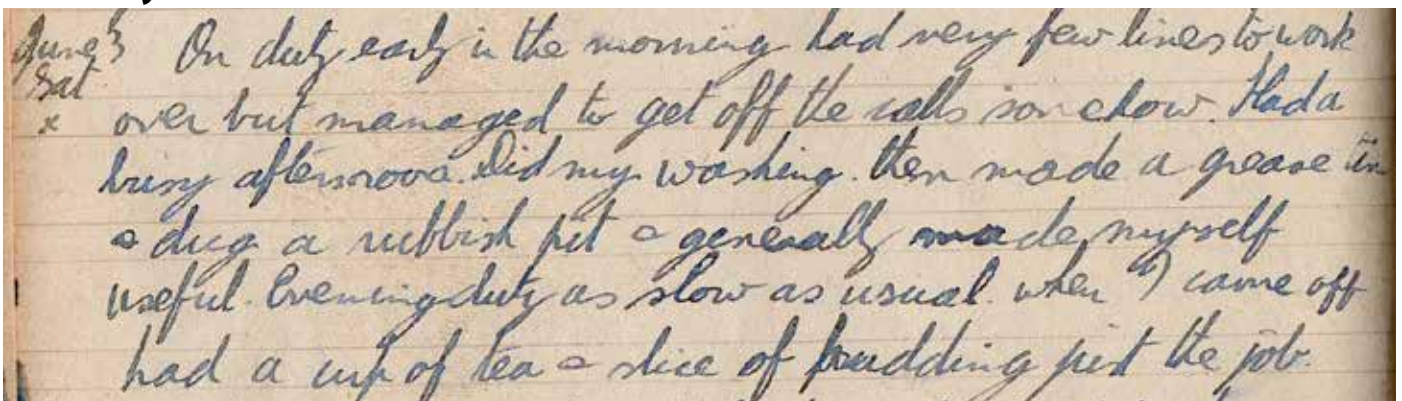 June 3 On duty early in the morning had very few lines to work
Sat
x over but managed to get off the calls somehow. Had a
busy afternoon. Did my washing. then made a grease tin
& dug a rubbish pit & generally made myself
useful. Evening duty as slow as usual. when I came off
had a cup of tea & slice of pudding just the job.